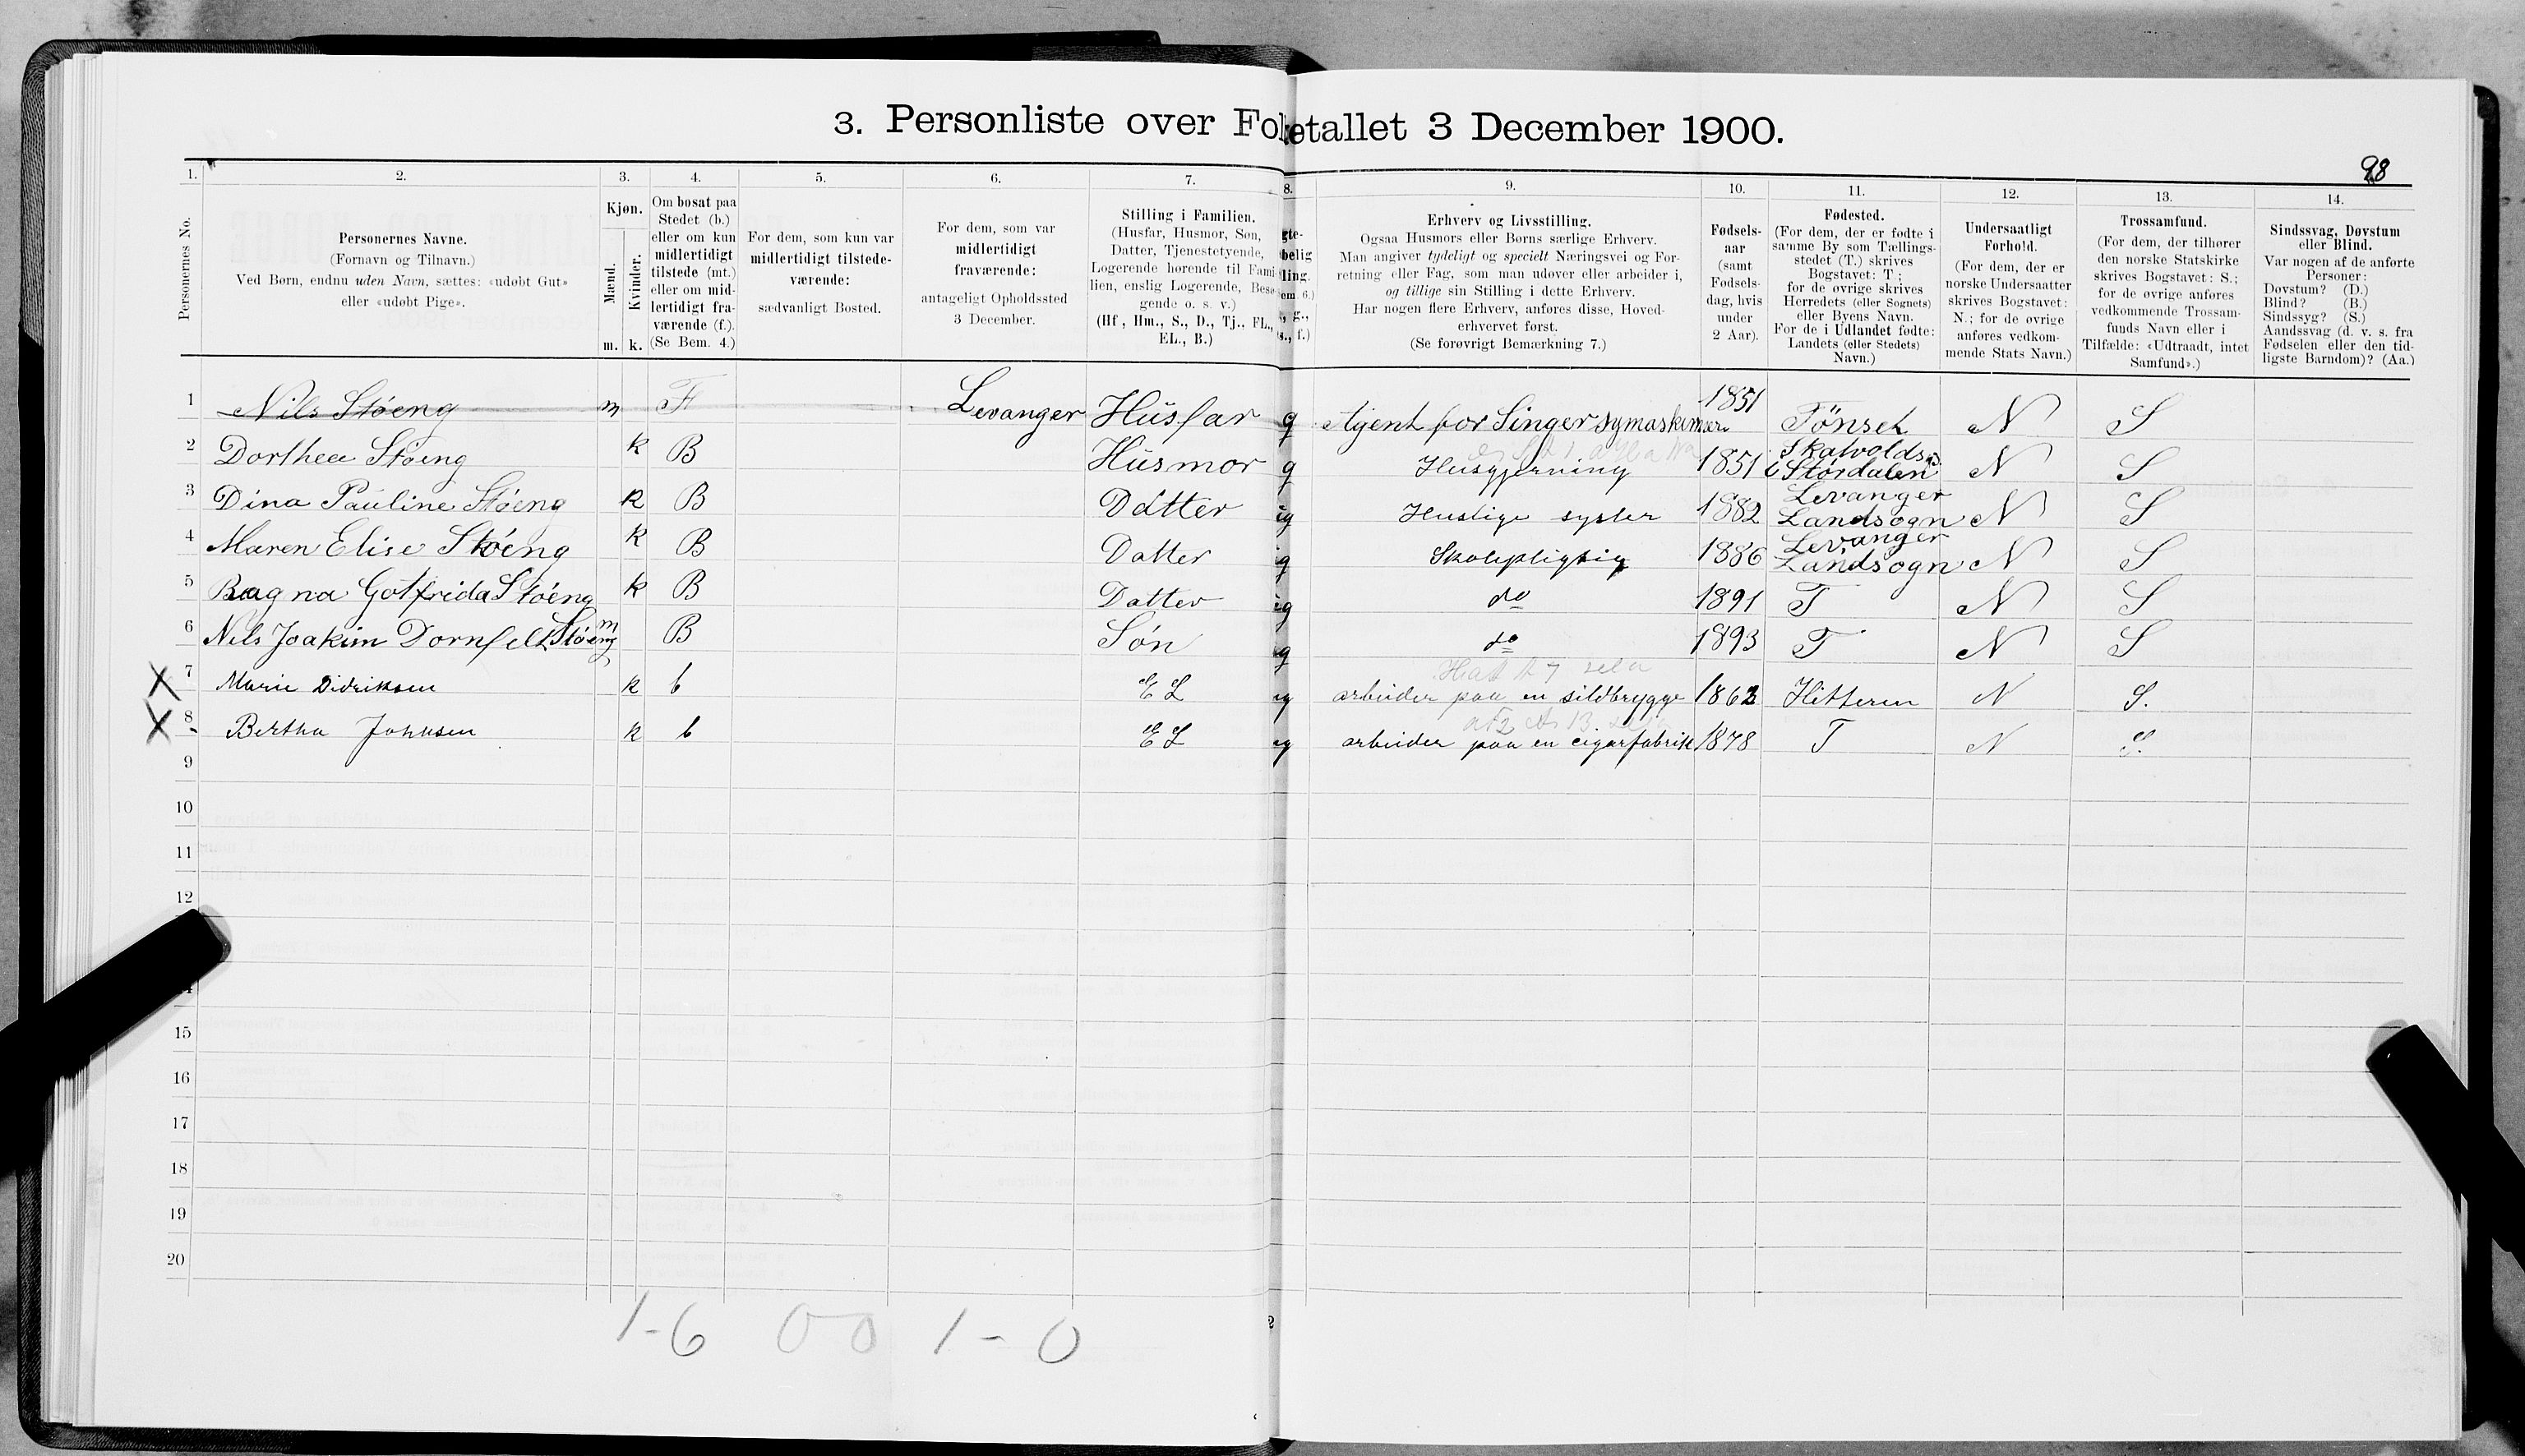 3. Personliste over Folketallet 3 December 1900.
98
1. 2. 3. 4. 5. 6. 7. 8. 9. 10. 11. 12. 13. 14.
Personernes No.
Personernes Navne.
(Fornavn og Tilnavn.)
Ved Børn, endnu uden Navn, sættes: «udøbt Gut»
eller «udøbt Pige».
Kjøn.
Mænd.
Kvinder.
m. k.
Om bosat paa
Stedet (b.)
eller om kun
midlertidigt
tilstede (mt.)
eller om mid-
lertidigt fra-
værende (f.).
(Se Bem. 4.)
For dem, som kun var
midlertidigt tilstede-
værende:
sædvanligt Bosted.
For dem, som var
midlertidigt
fraværende:
antageligt Opholdssted
3 December.
Stilling i Familien.
(Husfar, Husmor, Søn,
Datter, Tjenestetyende,
Logerende hørende til Fami-
lien, enslig Logerende, Besø-
gende o. s. v.)
(Hf., Hm., S., D., Tj., FL.,
EL., B.)
gte-
belig
ling.
em. 6.)
g.,
s., f.)
Erhverv og Livsstilling.
Ogsaa Husmors eller Børns særlige Erhverv.
Man angiver tydeligt og specielt Næringsvei og For-
retning eller Fag, som man udøver eller arbeider i,
og tillige sin Stilling i dette Erhverv.
Har nogen flere Erhverv, anføres disse, Hoved-
erhvervet først.
(Se forøvrigt Bemærkning 7.)
Fødsels-
aar
(samt
Fødsels-
dag, hvis
under
2 Aar).
Fødested.
(For dem, der er fødte i
samme By som Tællings-
stedet (T.) skrives
Bogstavet: T;
for de øvrige skrives
Herredets (eller Sognets)
eller Byens Navn.
For de i Udlandet fødte:
Landets (eller Stedets)
Navn.)
Undersaatligt
Forhold.
(For dem, der er
norske Undersaatter
skrives Bogstavet:
N.; for de øvrige
anføres vedkom-
mende Stats Navn.)
Trossamfund.
(For dem, der tilhører
den norske Statskirke
skrives Bogstavet: S.;
for de øvrige anføres
vedkommende Trossam-
funds Navn eller i
Tilfælde: «Udtraadt, intet
Samfund».)
Sindssvag, Døvstum
eller Blind.
Var nogen af de anførte
Personer:
Døvstum? (D.)
Blind? (B.)
Sindssyg? (S.)
Aandssvag (d. v. s. fra
Fødselen eller den tid-
ligste Barndom)? (Aa.)
1 Nils Stöeng m F Levanger Husfar g Agent for Singer symaskinser 1851 Tönset N S
2 Dorthea Stöeng k B Husmor g Husgjerning 1851 Skatvolds i Stördalen N S
3 Dina Pauline Stöeng k B Datter ig Huslige sysler 1882 Levanger Landsogn N S
4 Maren Elise Stöeng k B Datter ig Skolepligtig 1886 Levanger Landsogn N S
5 Ragna Gotfrida Stöeng k B Datter ig do 1891 T N S
6 Nils Joakim Dornfeldt Stöeng m B Sön ig do 1893 T N S
X 7 Marie Didriksen k b EL ug arbeider paa en sildbrygge 1862 Hitteren N S.
X 8 Bertha Johnsen k b EL ug arbeider paa en cigarfabrik 1878 T N S.
9
10
11
12
15
16
17
18
19
20
1-6 0 0 1-0
2